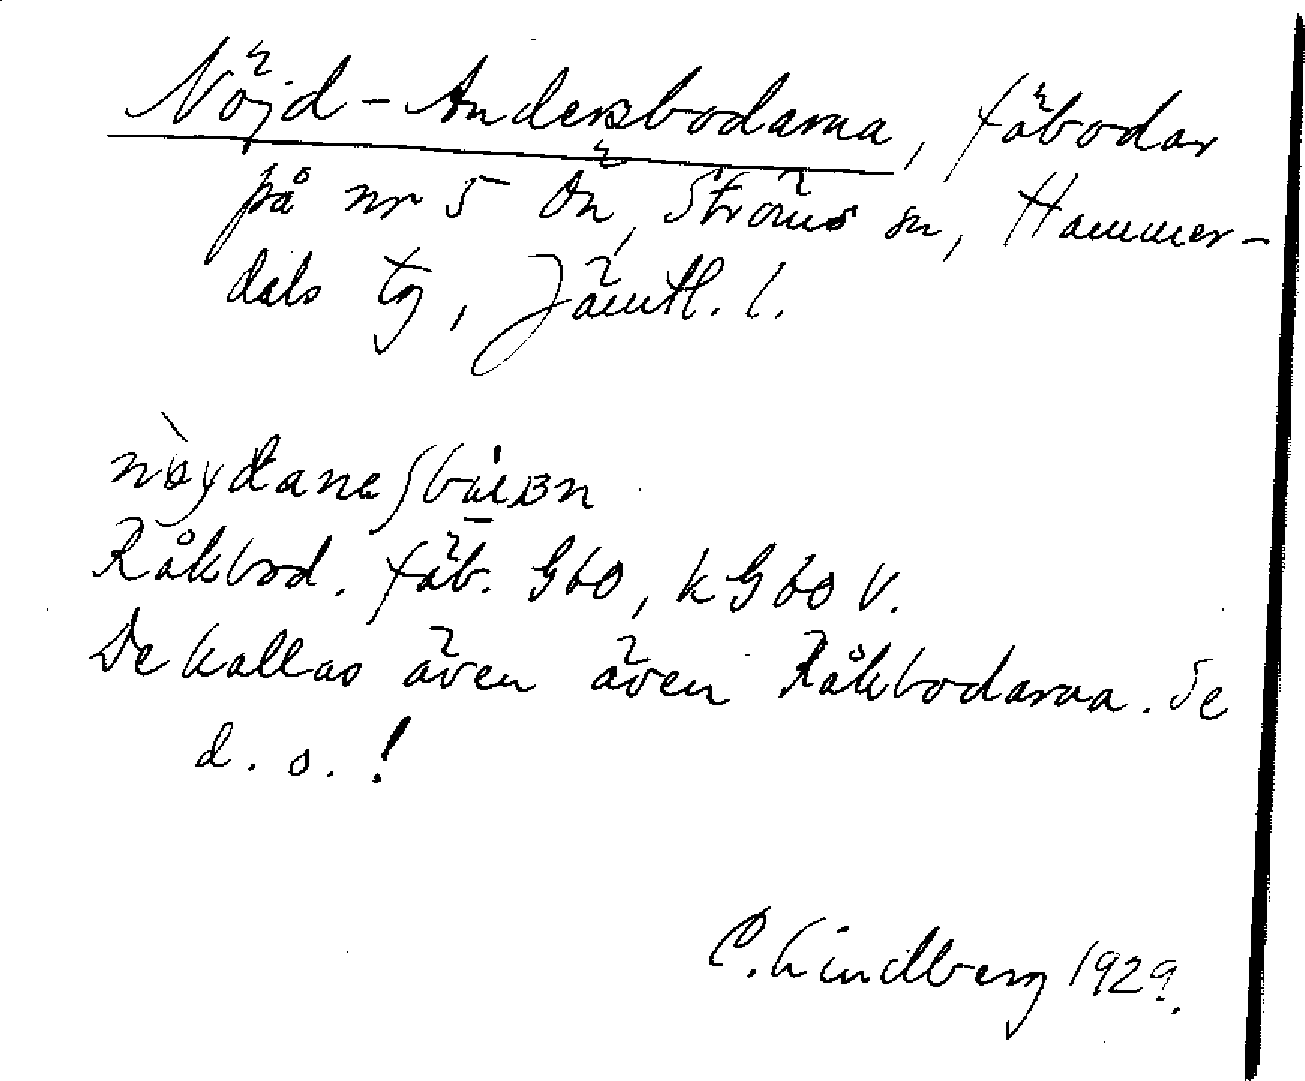 Nöjd-Andersbodarna, fäbodar
på nr 5 Ön, Ströms sn, Hammer-
dals tg, Jämtl. l.
Råkbod. fäb. Gbo, k Gbo V.
De kallas även även Råkbodarna. Se
d. o.!
C. Lindberg 1929.